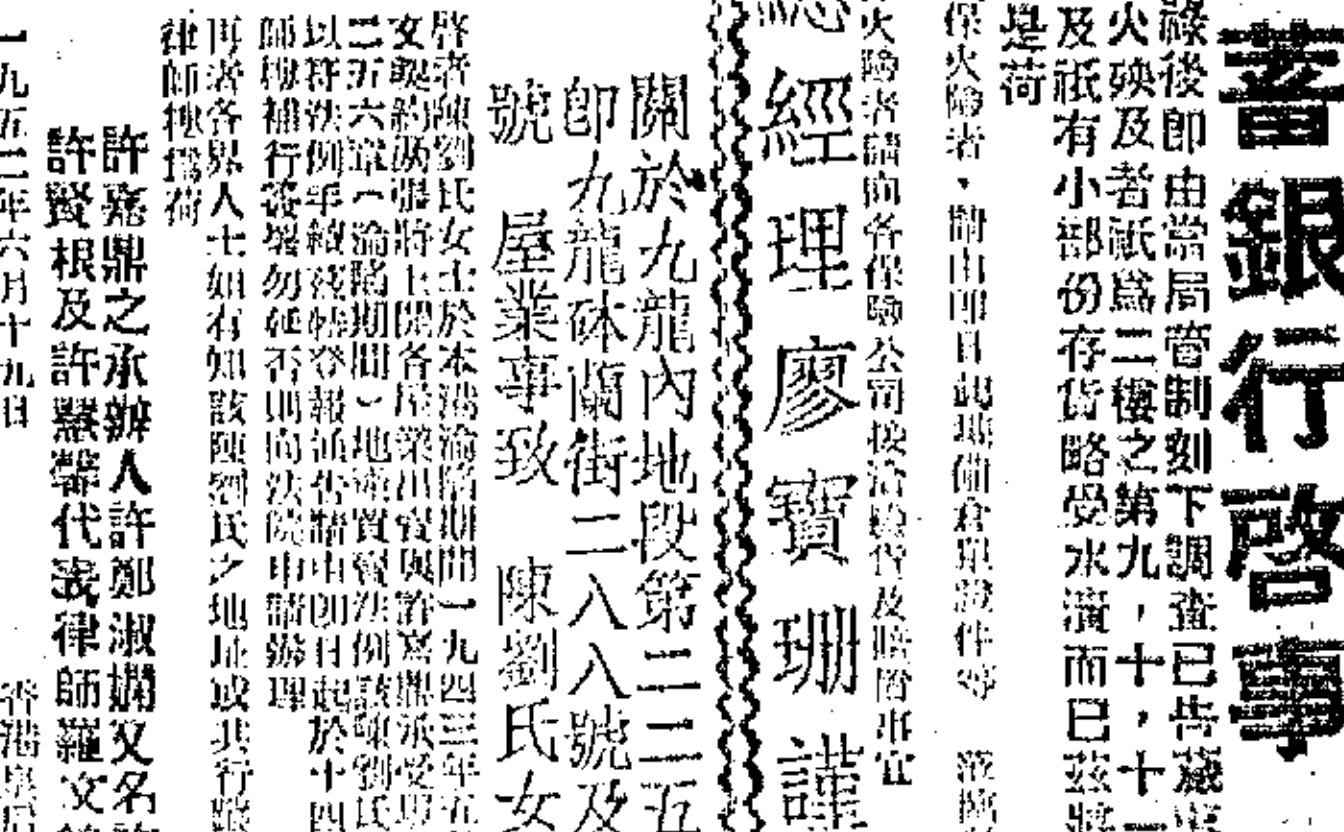 蓄銀行啓事
後即由當局管制刻下調查已告蕆
火殃及者祇爲二樓之第九，十，十一
及祇有小部份存貨略受水漬而已茲將
是荷
保火險者・請由即日起携備倉單證件等
火險者請向各保險公司接洽驗看及賠償事宜
總經理廖寶珊謹
關於九龍內地段第二二五
即九龍砵蘭街二八八號及
號 屋業事致 陳劉氏女
啓者陳劉氏女士於本港淪陷期間一九四三年五
文契約將上開各屋業出賣與許嘉鼎承受
二五六章（淪陷期間）地產買賣法例該陳劉氏
以符法例手續茲特登報通告請由即日起於十四
師樓補行簽契勿延否則向法院申請辦理
再者各界人士如有知該陳劉氏之地址或其行蹤
律師樓爲荷
許嘉鼎之承辦人許鄭淑嫻又名
許賢根及許慧馨代表律師羅文
一九五二年六月十九日 香港